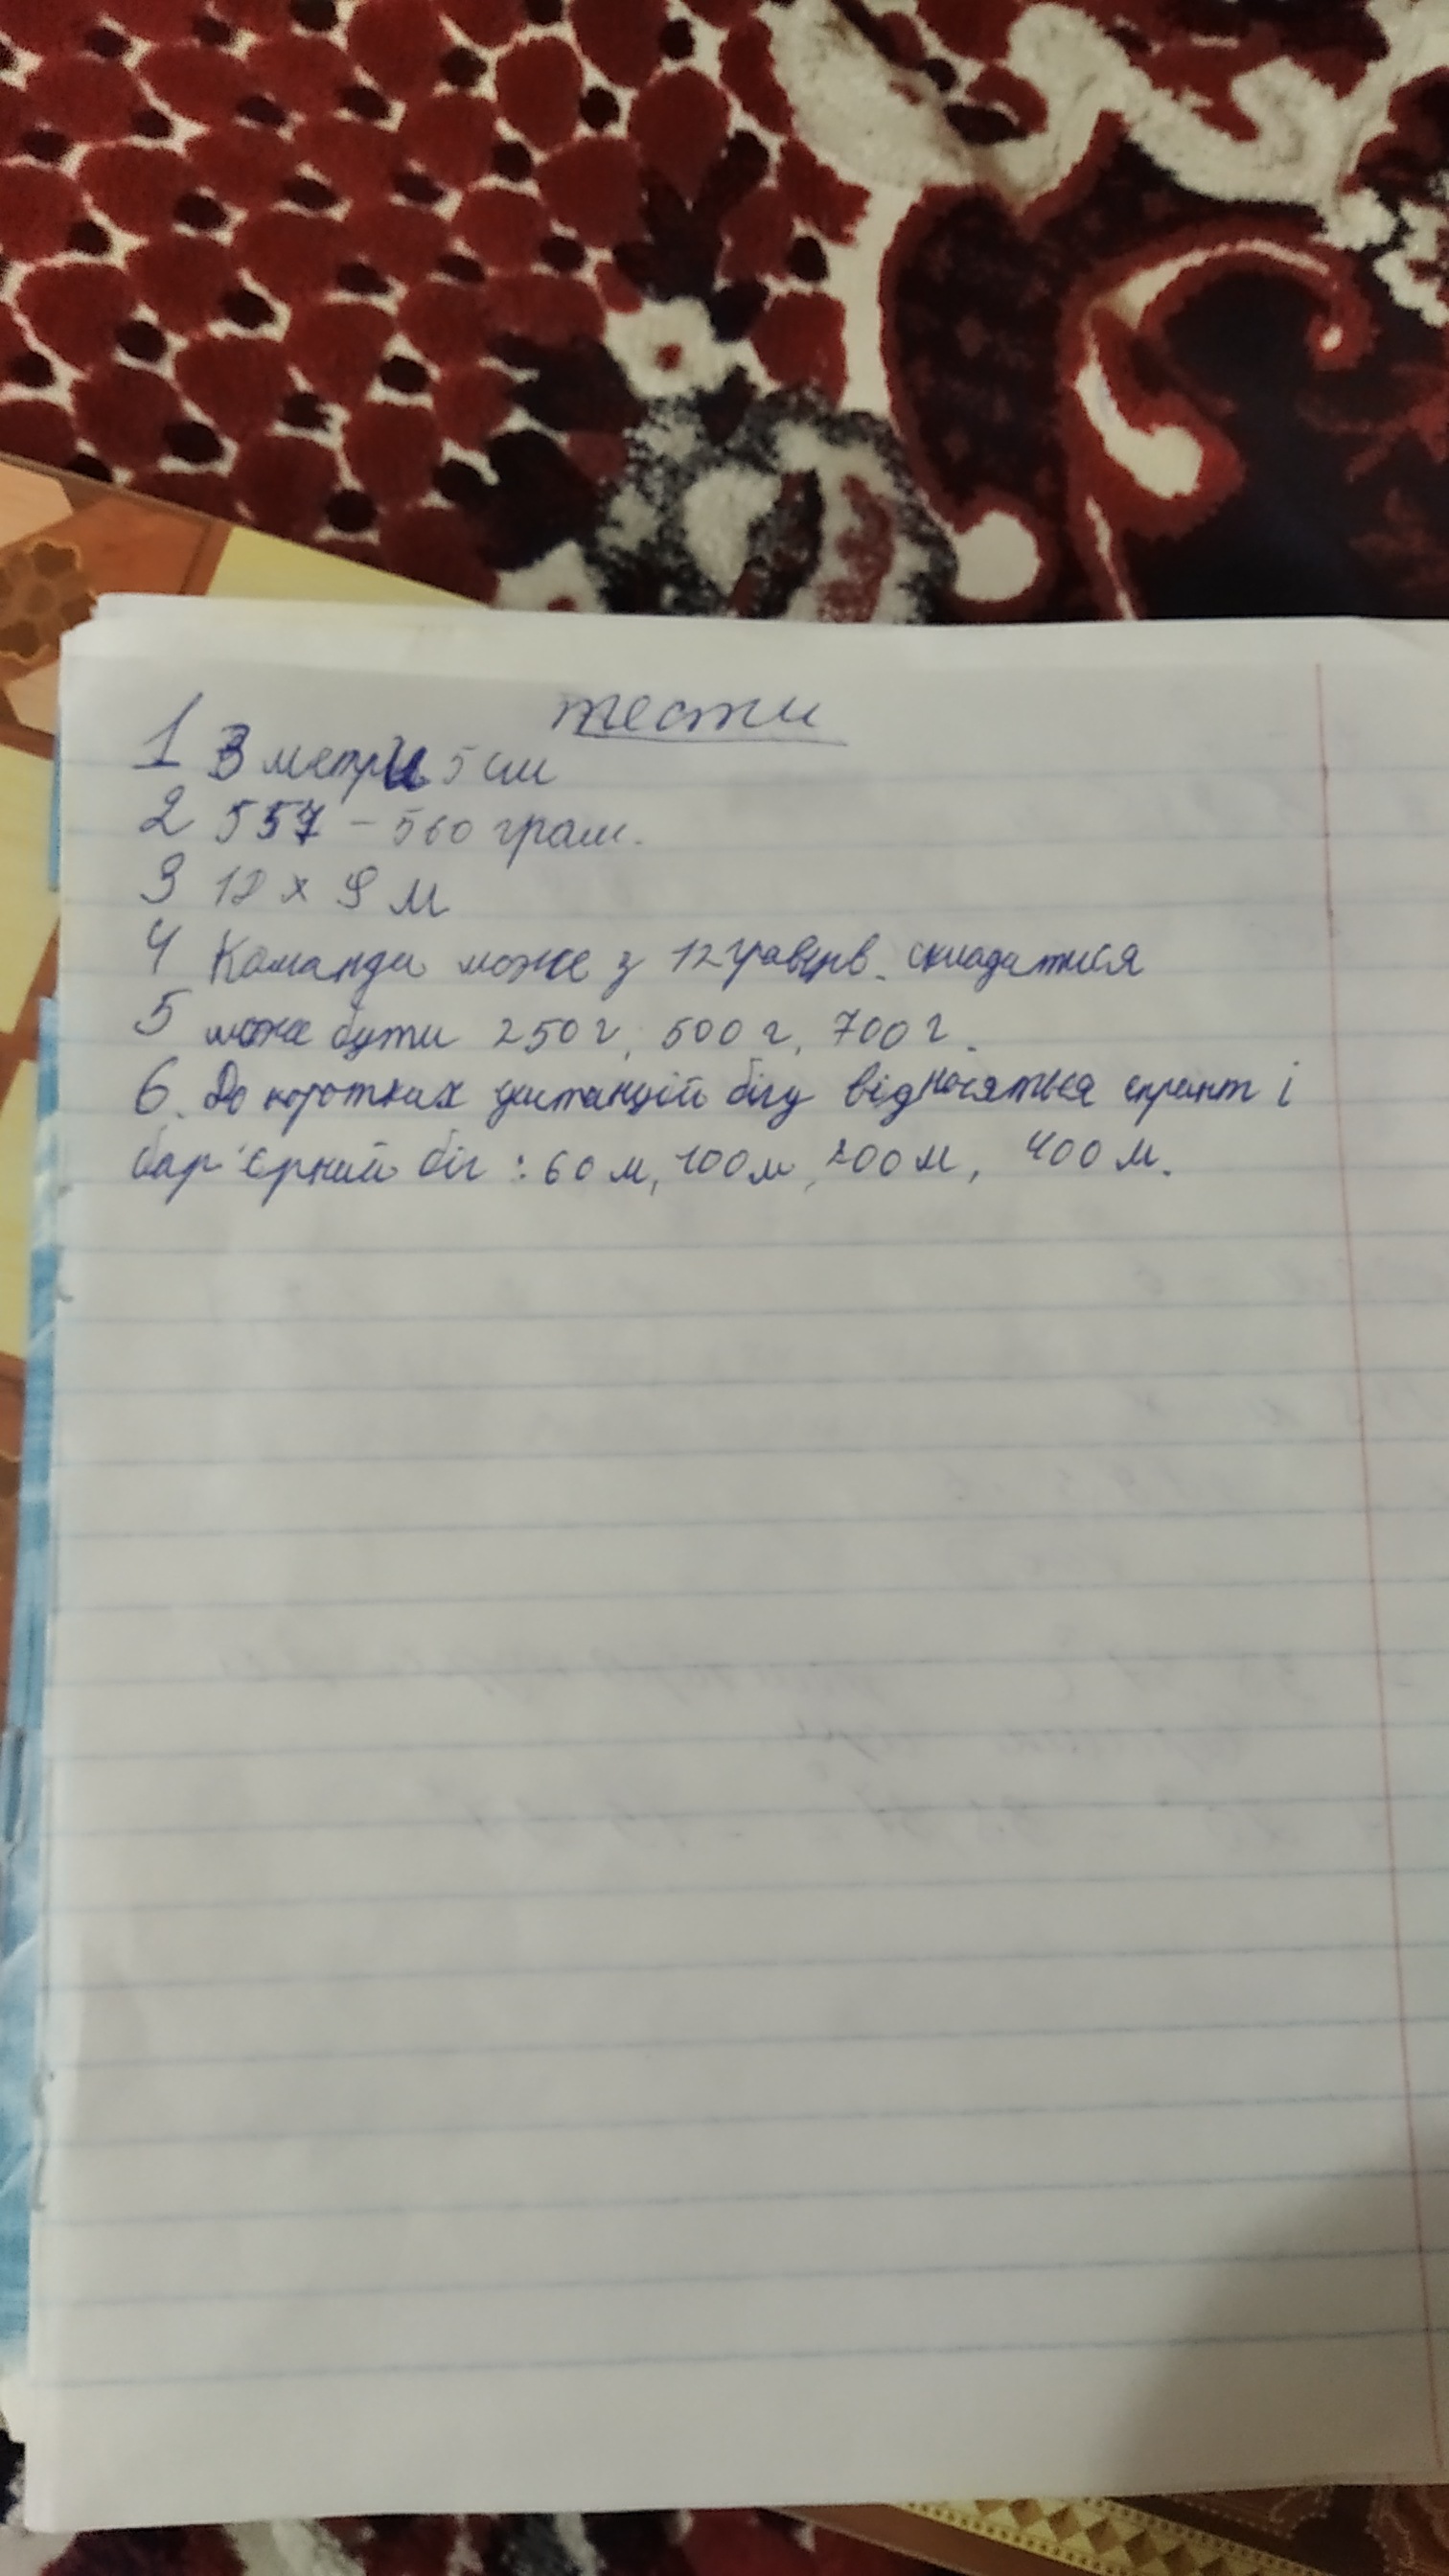 тести
1 3 метри 5 см
2 557 - 560 грам.
3 18 х 9 м
4 Команда може з 12 гравців. складатися
5 може бути 250 г, 500 г, 700 г.
6. До коротких дистанцій бігу відносяться спринт і
бар'єрний біг : 60 м, 100 м, 200 м, 400 м.